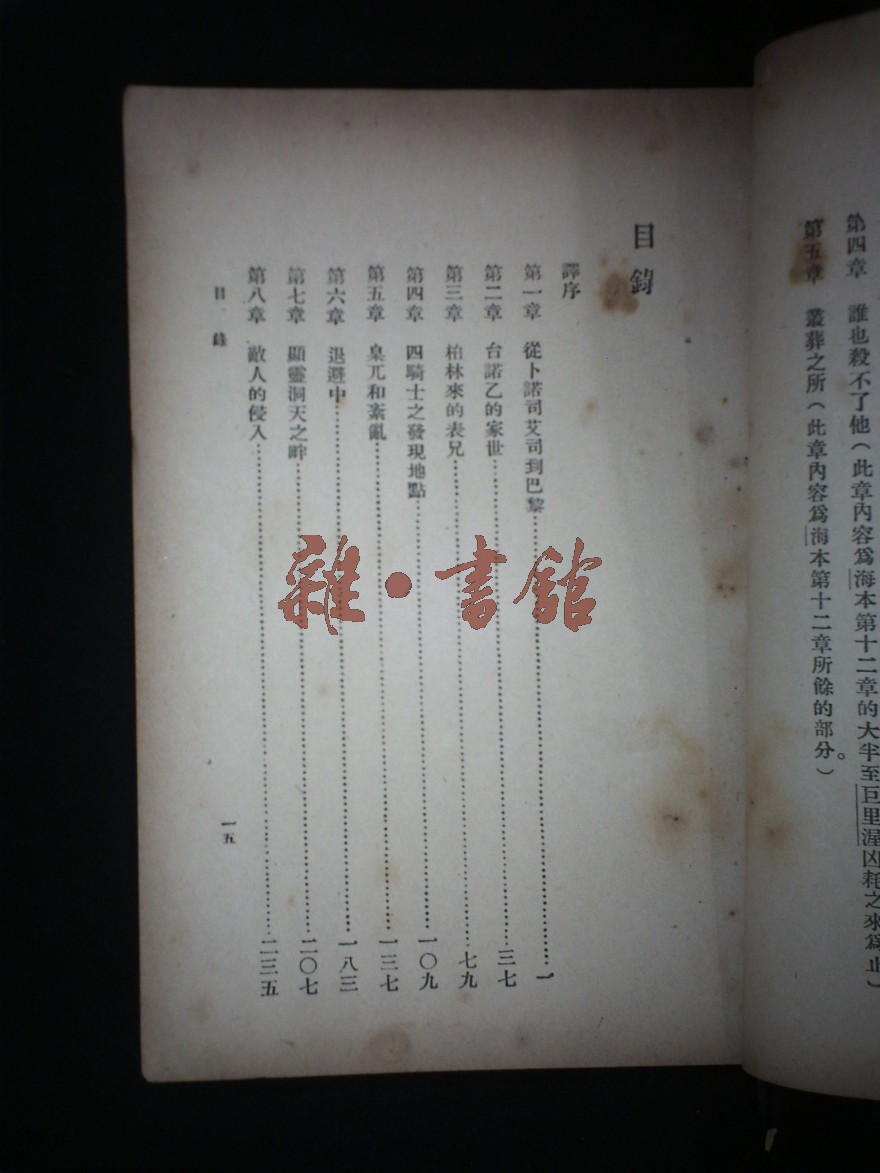 第四章　誰也殺不了他（此章內容爲海本第十二章的大半至巨里渥凶耗之來爲止）
第五章　叢葬之所（此章內容爲海本第十二章所餘的部分。）
目錄
譯序
第一章　從卜諾司艾司到巴黎……一
第二章　台諾乙的家世……三七
第三章　柏林來的表兄……七九
第四章　四騎士之發現地點……一〇九
第五章　臬兀和紊亂……一三七
第六章　退避中……一八三
第七章　顯靈洞天之畔……二〇七
第八章　敵人的侵入……二三五
目錄
一五
雜·書館